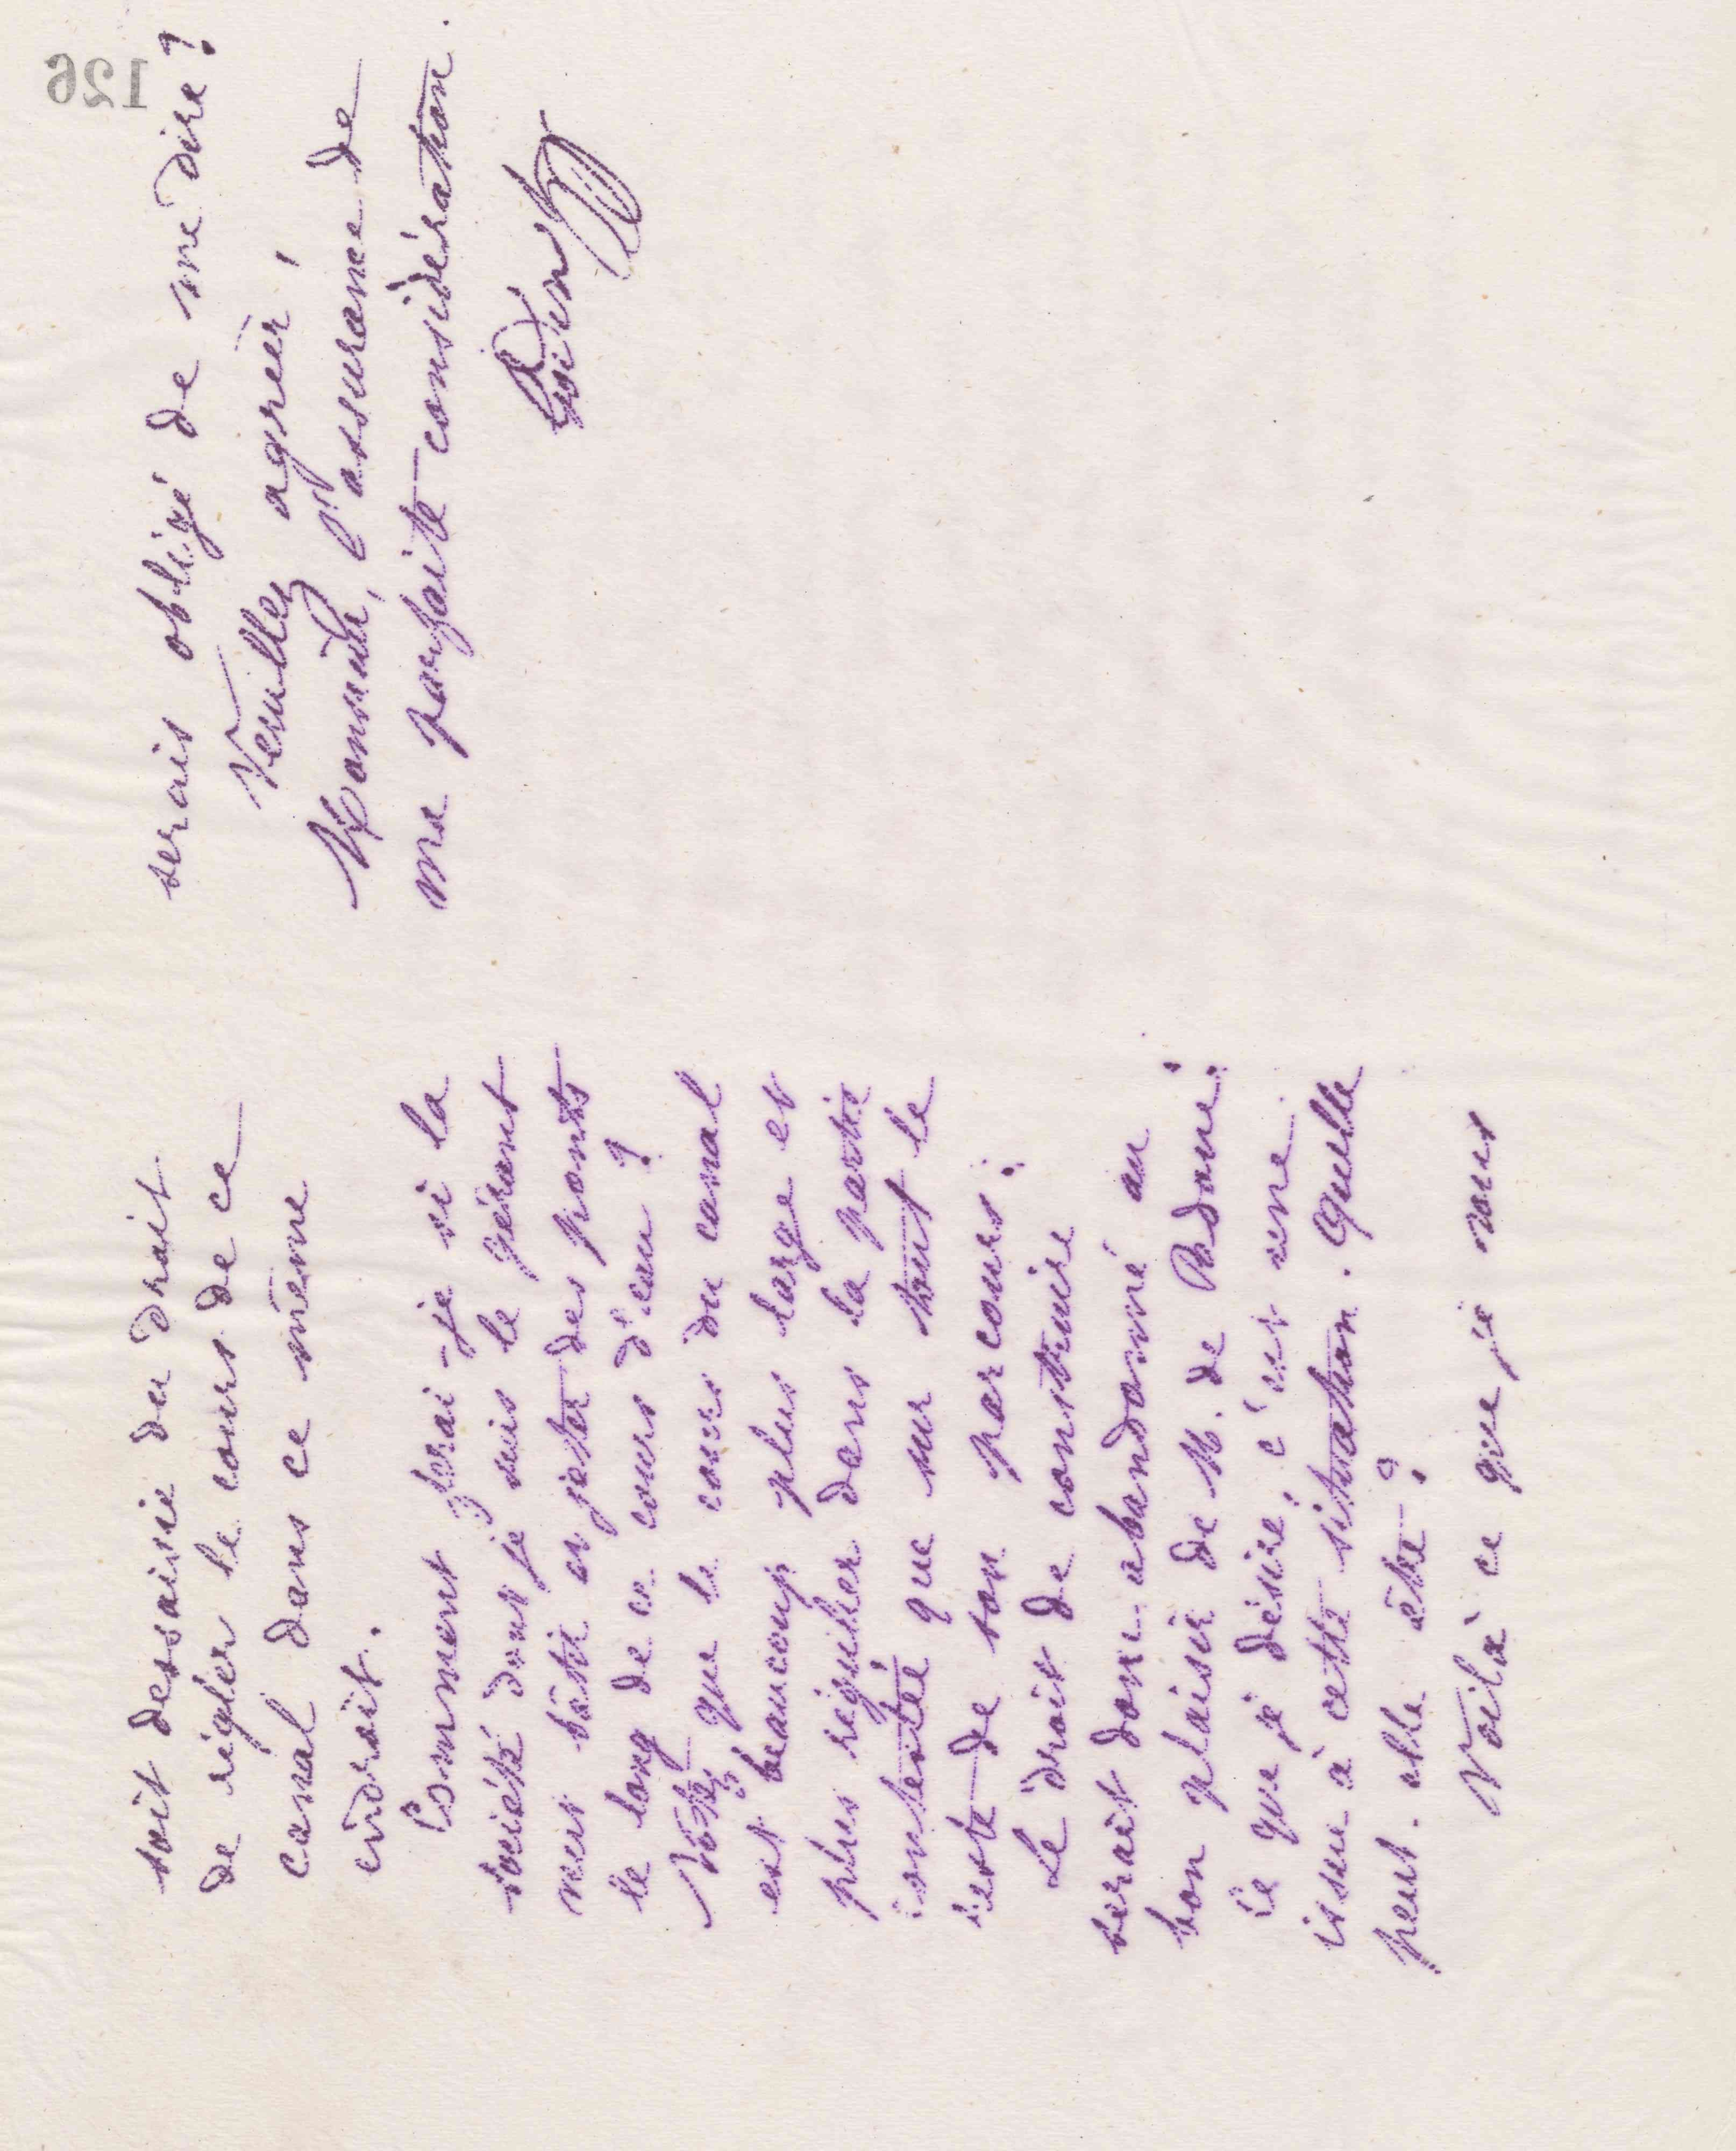 soit dessaisie du droit
de régler le cours de ce
canal dans ce même
endroit.
Comment ferai-je si la
société dont je suis le gérant
veut bâtir et jeter des ponts
le long de ce cours d'eau ?
Notez que le cours du canal
est beaucoup plus large et
plus régulier dans la partie
contestée que sur tout le
reste de son parcours.
Le droit de construire
serait donc abandonné au
bon plaisir de M. de
Ce que je désire, c'est une
issue à cette situation. Quelle
peut-elle être ?
Voilà ce que je vous
serais obligé de me dire ?
Veuillez agréer,
Monsieur, l'assurance de
ma parfaite considération.
126